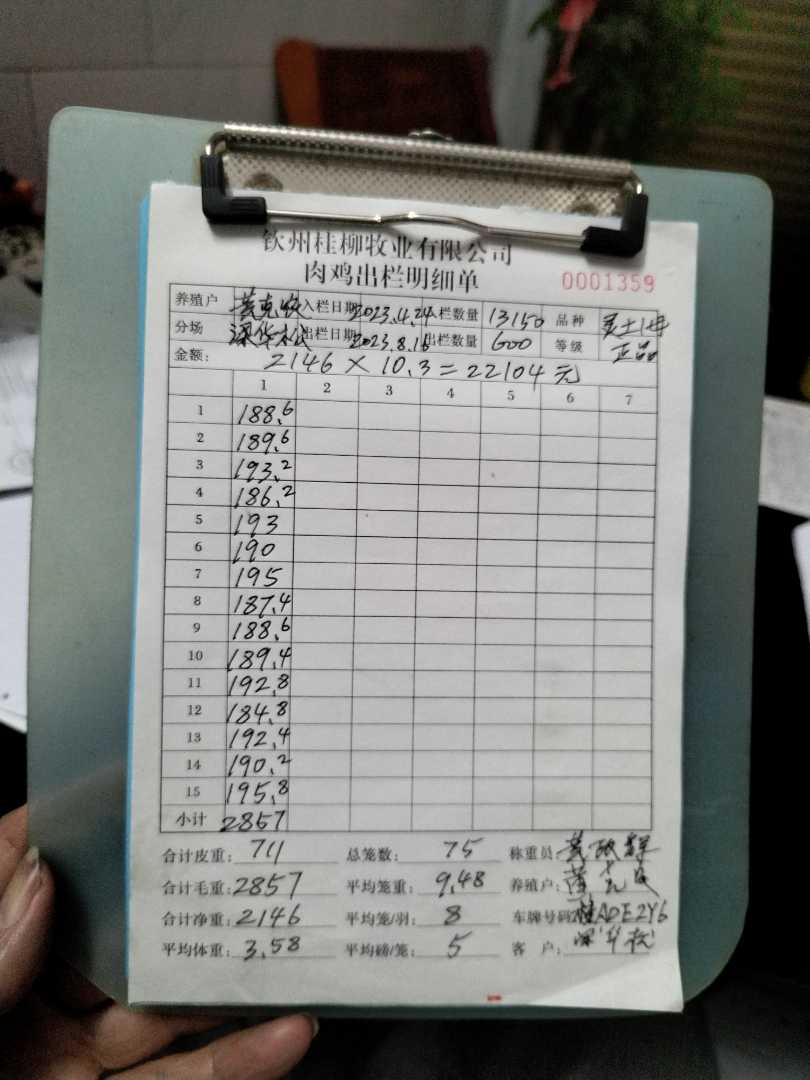 钦州桂柳牧业有限公司
肉鸡出栏明细单 0001359
养殖户 黄克 入栏日期 2023.4.24 入栏数量 13150 品种
分场 梁华松 出栏日期 2023.8.16 出栏数量 600 等级 正品
金额: 2146 × 10.3 = 22104元
1 2 3 4 5 6 7
1 188.6
2 189.6
3 193.2
4 186.2
5 193
6 190
7 195
8 187.4
9 188.6
10 189.4
11 192.8
12 184.8
13 192.4
14 190.2
15 195.8
小计 2857
合计皮重: 711 总笼数: 75 称重员: 黄 群
合计毛重: 2857 平均笼重: 9.48 养殖户: 黄克
合计净重: 2146 平均笼/羽: 8 车牌号码: 桂ADE2Y6
平均体重: 3.58 平均磅/笼: 5 客 户: 梁华松